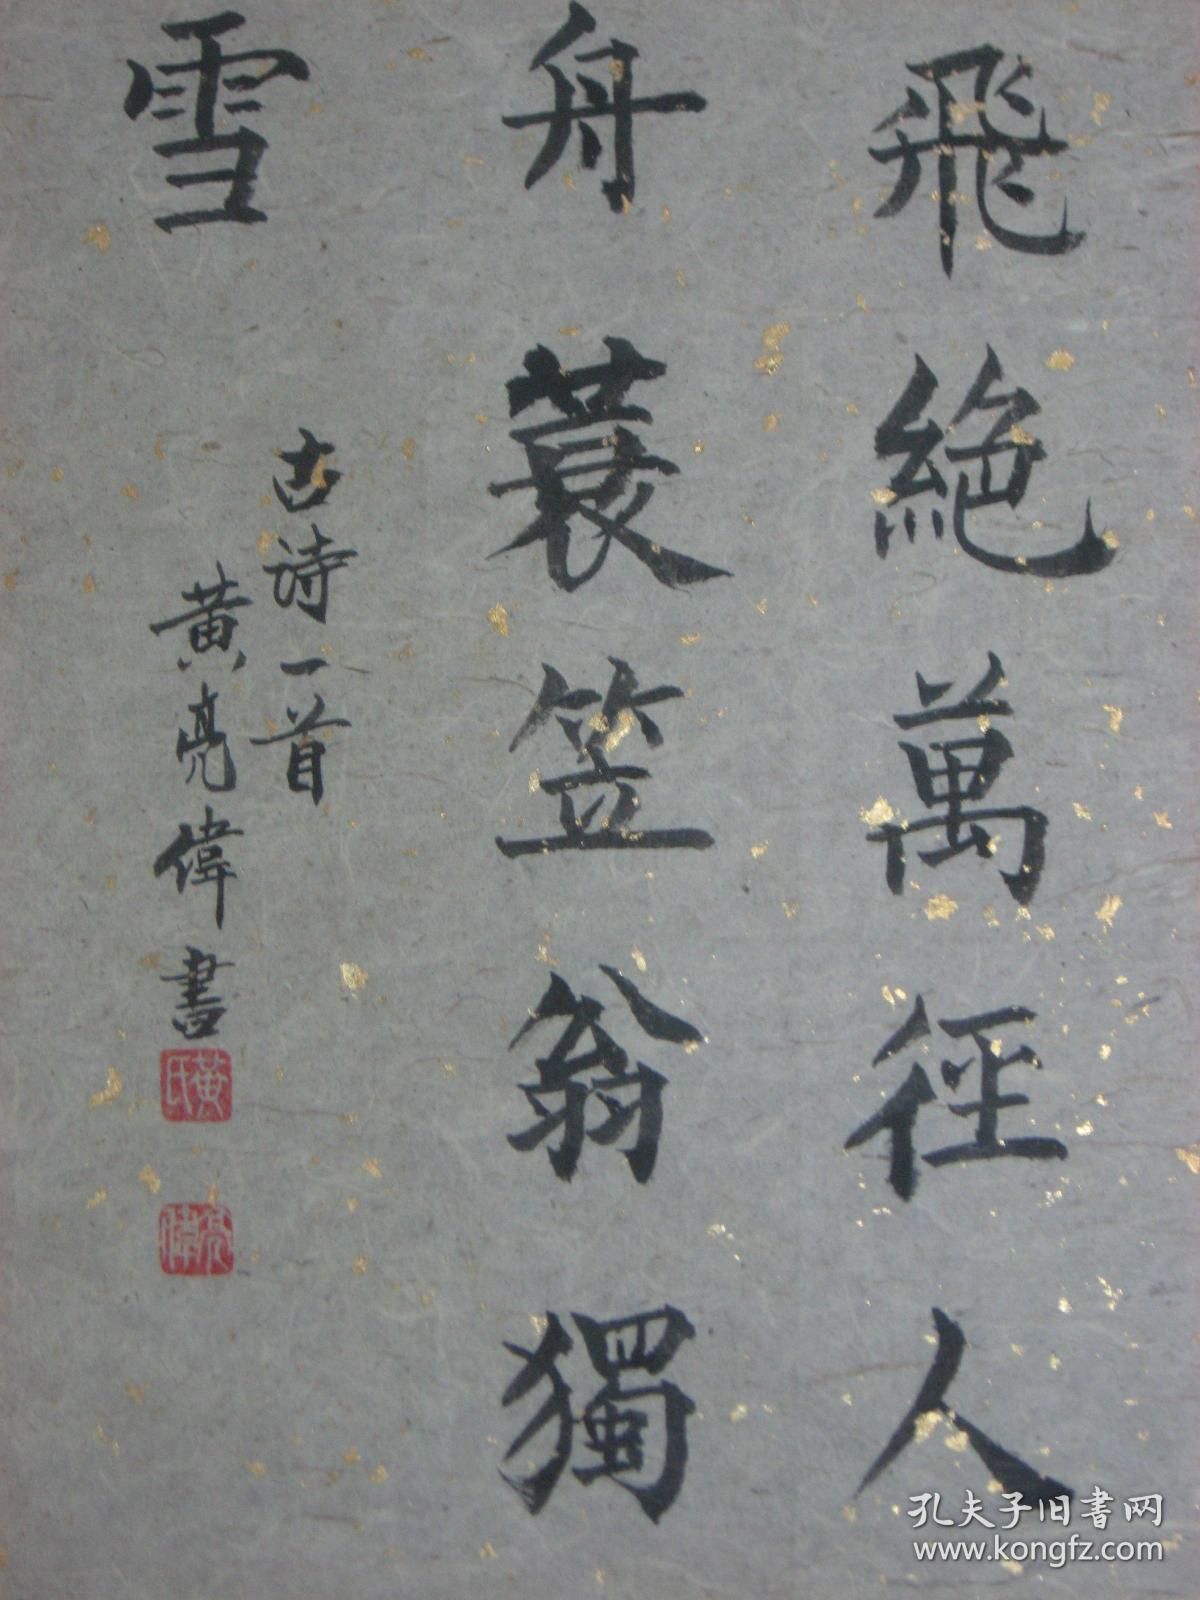 飛絕萬徑人
舟蓑笠翁獨
雪
古诗一首
黄亮偉書
黃氏
亮偉
孔夫子旧書网
www.kongfz.com